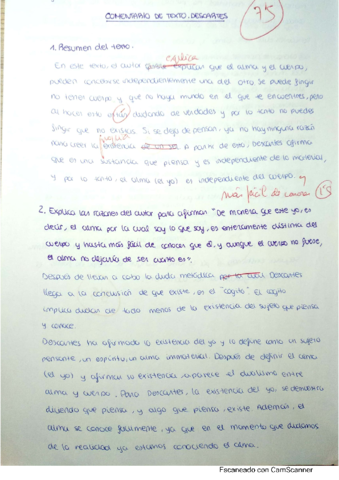 COMENTARIO DE TEXTO. DESCARTES
7'5
1. Resumen del texto.
explica
En este texto, el autor explicar que el alma y el cuerpo,
pueden concebirse independientemente una del otro. Se puede fingir
no tener cuerpo y que no haya mundo en el que te encuentres, pero
al hacer esto dudando de verdades y por lo tanto no puedes
fingir que no exista. Si se deja de pensar, ya no hay ninguna razón
para creer la existencia. A parte de eso, Descartes afirma
que es una sustancia que piensa y es independiente de lo material,
y por lo tanto, el alma (el yo) es independiente del cuerpo. y
más fácil de conocer 1'5
2. Explica las razones del autor para afirmar "De manera que este yo, es
decir, el alma por la cual soy lo que soy, es enteramente distinta del
cuerpo y hasta más fácil de conocer que él, y aunque el cuerpo no fuese,
el alma no dejaría de ser cuanto es".
Después de llevar a cabo la duda metódica Descartes
llega a la conclusión de que existe, es el "cogito". El cogito
implica dudar de todo menos de la existencia del sujeto que piensa
y conoce.
Descartes ha afirmado la existencia del yo y lo define como un sujeto
pensante, un espíritu, un alma inmaterial. Después de definir el alma
(el yo) y afirmar su existencia aparece el dualismo entre
alma y cuerpo. Para Descartes, la existencia del yo, se demuestra
diciendo que piensa, y algo que piensa, existe. Además, el
alma se conoce fácilmente, ya que en el momento que dudamos
de la realidad ya estamos conociendo el alma.
Escaneado con CamScanner